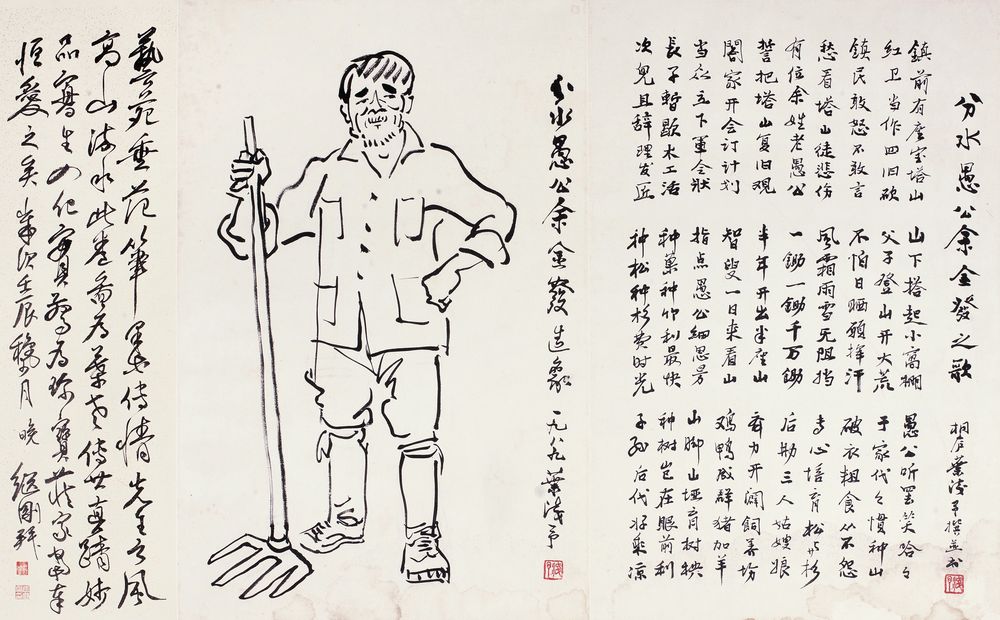 分水愚公余金發之歌
桐庐葉淺予撰并書
鎮前有座宝塔山
红卫当作四旧砍
鎮民敢怒不敢言
愁看塔山徒悲伤
有位余姓老愚公
誓把塔山复旧观
閤家开会订计划
当众立下軍令狀
長子暫歇木工活
次兒且辞理发匠
山下搭起小窩棚
父子登山开大荒
不怕日晒頭挥汗
風霜雨雪无阻挡
一鋤一鋤千万鋤
半年开出半座山
智叟一日来看山
指点愚公細思量
种菓种竹利最快
种松种杉费时光
愚公听罢笑哈々
予家代々慣种山
破衣粗食从不怨
专心培育松与杉
后勤三人姑嫂娘
齐力开闢飼养场
鸡鸭成群猪加羊
山脚山垭育树秧
种树岂在眼前利
子孙后代好乘凉
分水愚公余金發造象 一九八九 葉淺予
藝苑垂范筆墨传情先生之風
高山流水此卷當为葉老传世真蹟妙
品寫生如化為珍寶莊家
恒爱之矣 歲次壬辰穐月 晚 繼剛拜